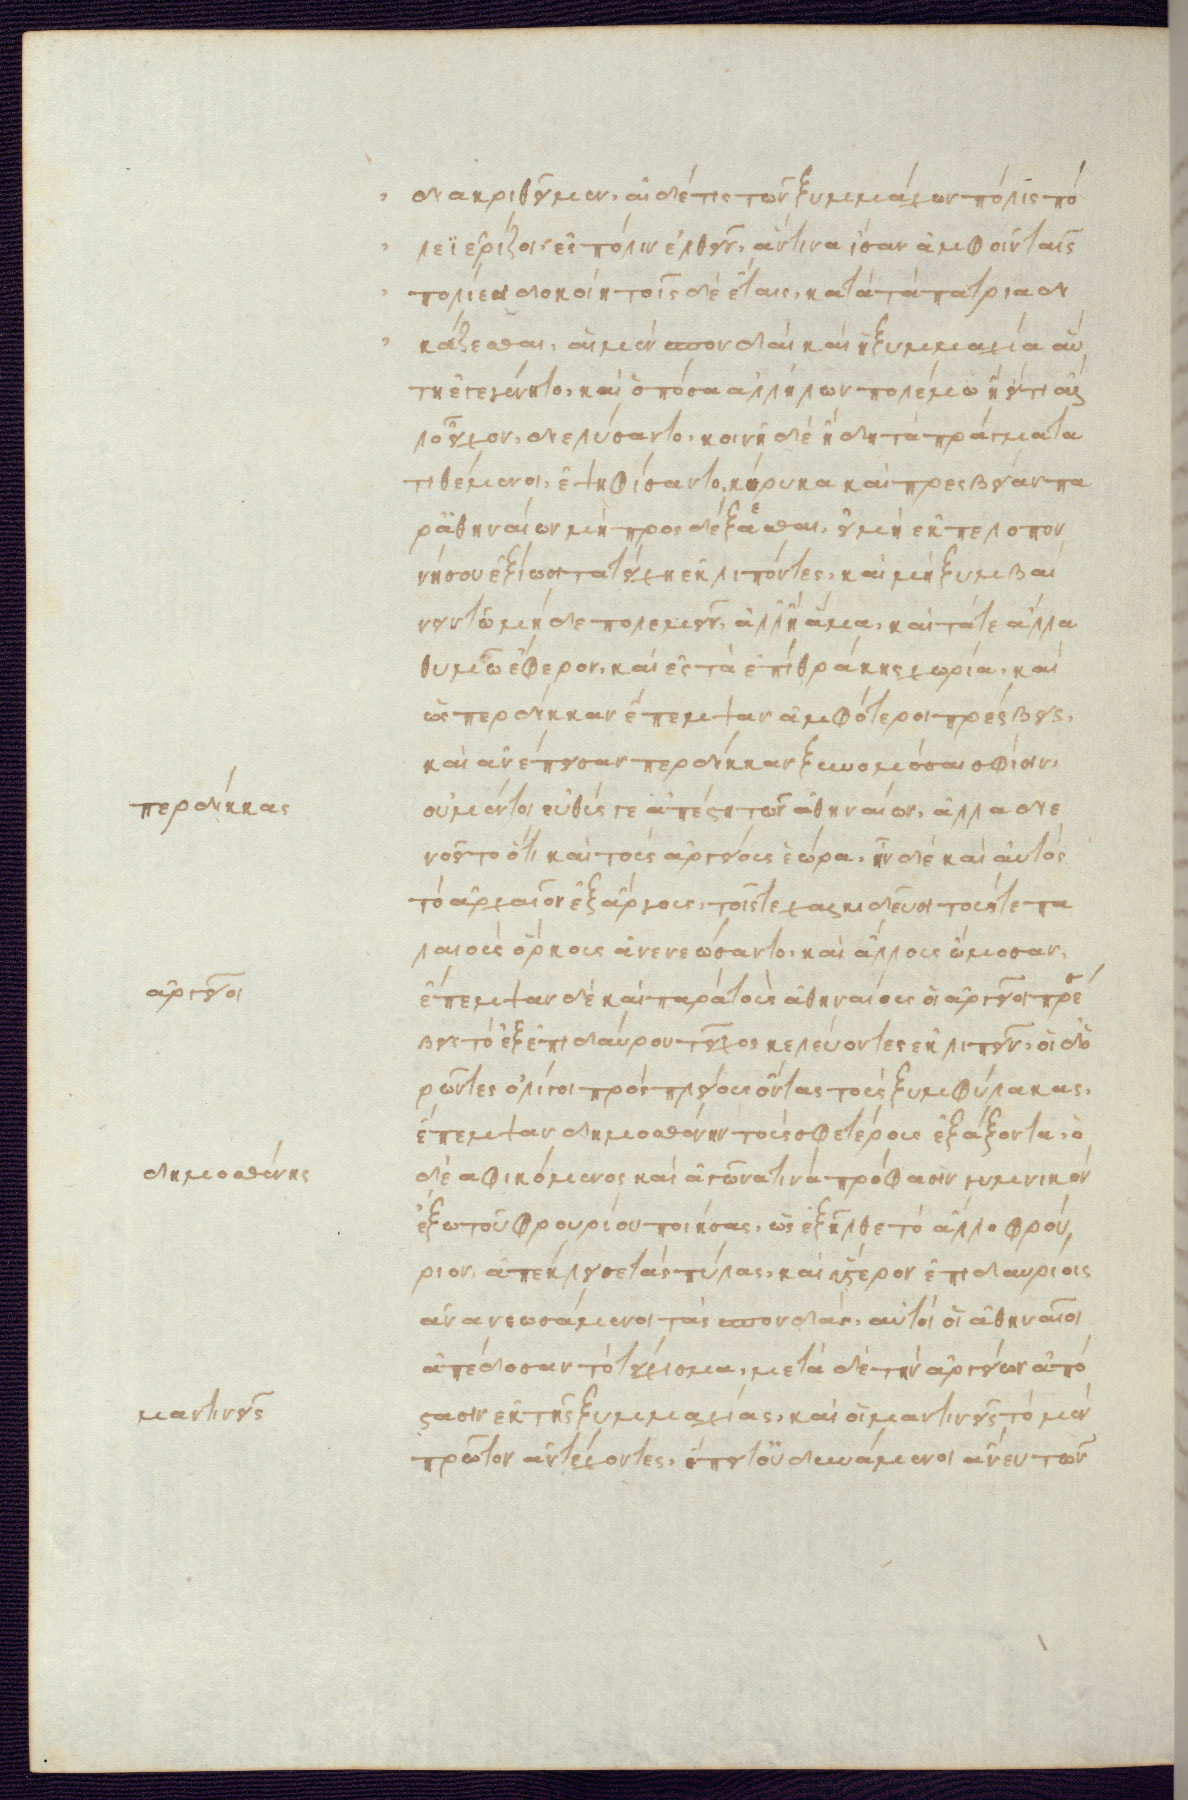 διακριθῆμεν. αἰ δέ τις τῶν ξυμμάχων πόλις πό
λεϊ ἐρίζοι, ἐς πόλιν ἐλθεῖν. ἅντινα ἴσαν ἀμφοῖν ταῖς
πολίεσι δοκοίη τοῖς δὲ ἔταις, κατὰ τὰ πάτρια δι
κάζεσθαι. αἱ μὲν σπονδαὶ καὶ ἡ ξυμμαχία αὕ
τη ἐγεγένητο, καὶ ὁπόσα ἀλλήλων πολέμω ἢ εἴ τι ἄλ
λο εἶχον, διελύσαντο. κοινῇ δὲ ἤδη τὰ πράγματα
τιθέμενοι, ἐψηφίσαντο κήρυκα καὶ πρεσβείαν πα
ρ' ἀθηναίων μὴ προσδέξασθαι, εἰ μὴ ἐκ πελοπον
νήσου ἐξίωσι τὰ τείχη ἐκλιπόντες, καὶ μὴ ξυμβαί
νειν τῷ μὴ δὲ πολεμεῖν. ἀλλ' ἢ ἅμα. καὶ τά τε ἄλλα
θυμῶ ἔφερον, καὶ ἐς τὰ ἐπὶ θράκης χωρία, καὶ
ὡς περδίκκαν ἔπεμψαν ἀμφότεροι πρέσβεις.
καὶ ἀνέπεισαν περδίκκαν ξυνομόσαι σφίσιν.
περδίκκας
οὐ μέντοι εὐθύς γε ἀπέστη τῶν ἀθηναίων. ἀλλὰ διε
νοεῖτο ὅτι καὶ τοὺς ἀργείους ἑώρα. ἦν δὲ καὶ αὐτὸς
τὸ ἀρχαῖον ἐξ ἄργους. τοῖς τε χαλκιδεῦσι τούς τε πα
λαιοὺς ὅρκους ἀνενεώσαντο. καὶ ἄλλους ὤμοσαν.
ἀργεῖοι
ἔπεμψαν δὲ καὶ παρὰ τοὺς ἀθηναίους οἱ ἀργεῖοι πρέσ
βεις τὸ ἐξ ἐπιδαύρου τεῖχος κελεύοντες ἐκλιπεῖν. οἱ δ' ὁ
ρῶντες ὀλίγοι πρὸς πλείους ὄντας τοὺς ξυμφύλακας.
ἔπεμψαν δημοσθένην τοὺς σφετέρους ἐξάξοντα. ὁ
δημοσθένης
δὲ ἀφικόμενος καὶ ἀγῶνα τινὰ πρόφασιν γυμνικὸν
ἔξω τοῦ φρουρίου ποιήσας. ὡς ἐξῆλθε τὸ ἄλλο φρού
ριον, ἀπέκλεισε τὰς πύλας. καὶ ὕστερον ἐπιδαυρίοις
ἀνανεωσάμενοι τὰς σπονδάς. αὐτοὶ οἱ ἀθηναῖοι
ἀπέδοσαν τὸ τείχισμα. μετὰ δὲ τὴν ἀργείων ἀπό
μαντινεῖς
στασιν ἐκ τῆς ξυμμαχίας. καὶ οἱ μαντινεῖς τὸ μὲν
πρῶτον ἀντέχοντες. ἔπειτ' οὐ δυνάμενοι ἄνευ τῶν